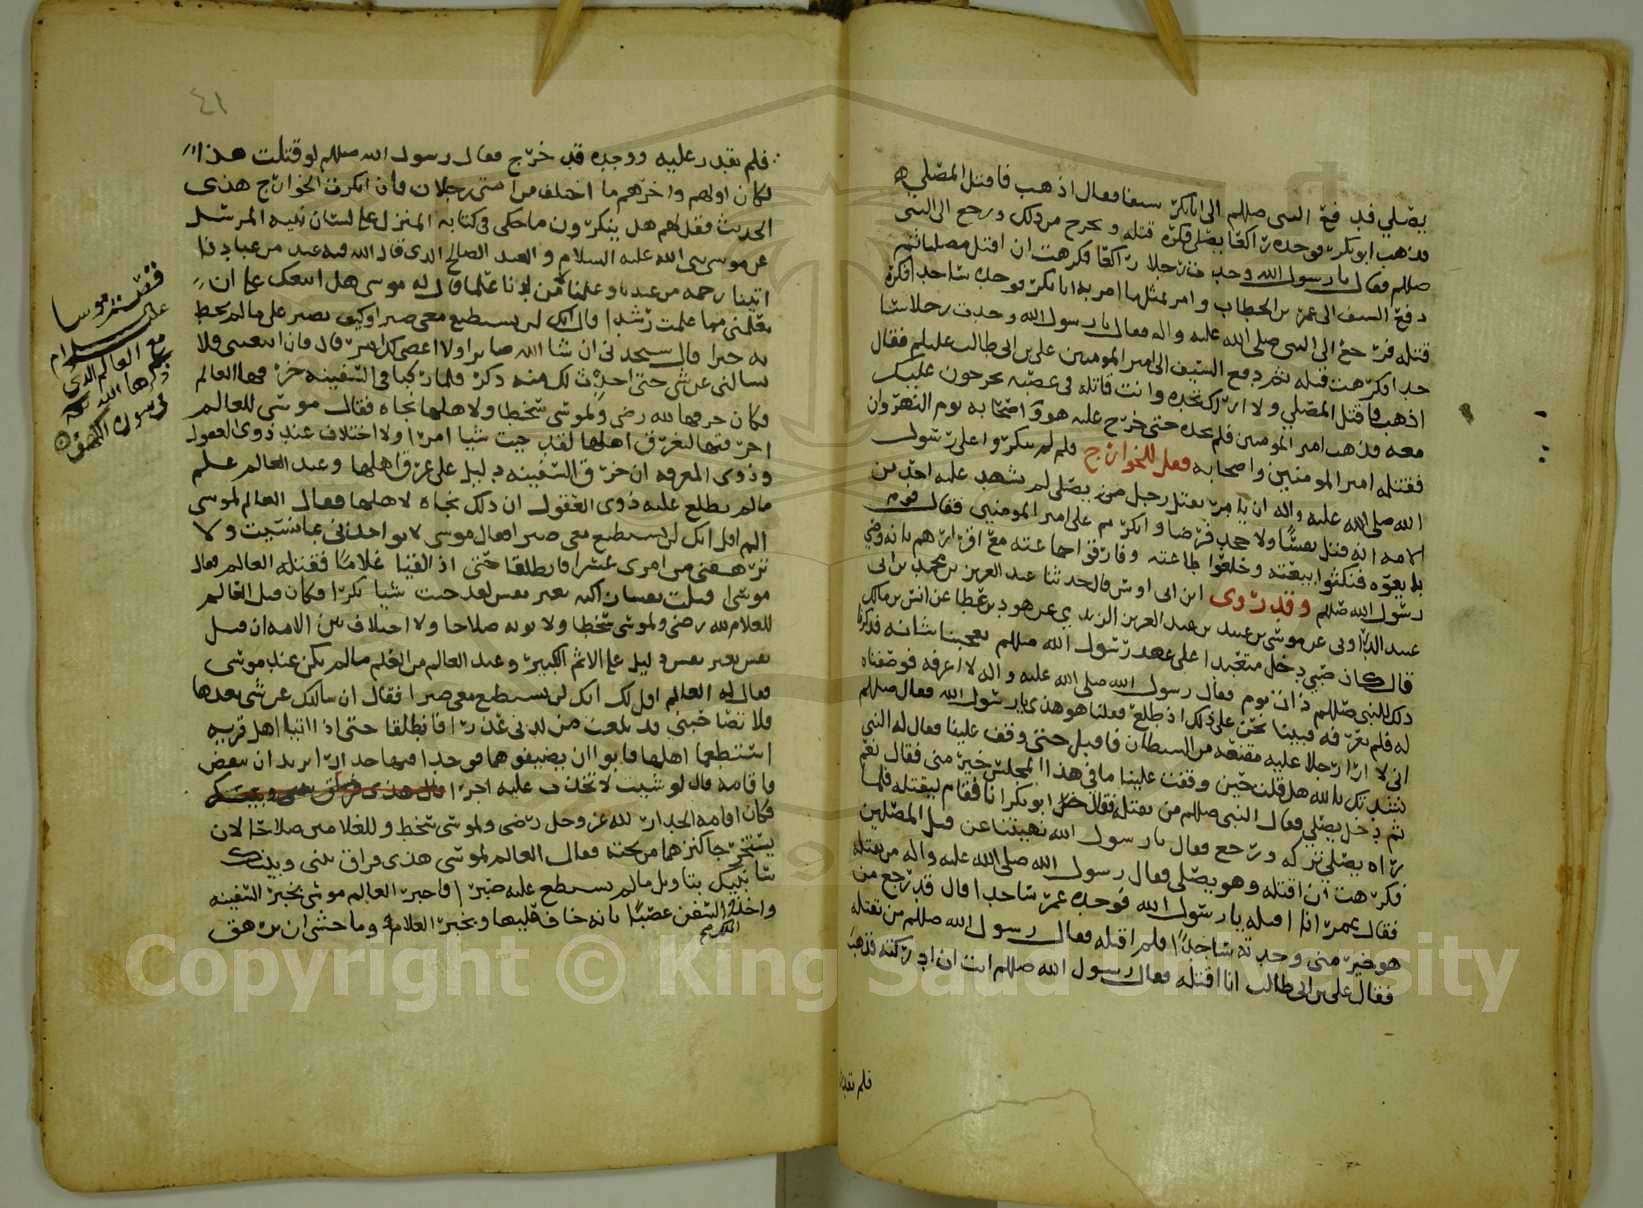 يصلي فدفع النبي صللم الى ابا بكر سيفا فقال اذهب فاقتل المصلي
فذهب ابو بكر فوجده راكعا يصلي فكره قتله وخرج من ذلك ورجع الى النبي
صللم فقال يا رسول الله وجدت رجلا راكعا فكرهت ان اقتل مصليا ثم
دفع السيف الى عمر بن الخطاب وامر بمثل ما امر به ابا بكر فوجده ساجدا فكره
قتله فرجع الى النبي صلى الله عليه واله فقال يا رسول الله وجدت رجلا ساجدا
فكرهت قتله ثم دفع السيف الى امير المومنين علي بن ابي طالب عليلم فقال
اذهب فاقتل المصلي ولا اراك تجده وانت قاتله في عصبه يخرجون عليك
معه فذهب امير المومنين فلم يجده حتى خرج عليه هو واصحابه يوم النهروان
فقتله امير المومنين واصحابه فقل للخوارج فلم لم ينكروا على رسول
الله صلى الله عليه واله ان يامر بقتل رجل يصلي لم يشهد عليه احد من
الامه انه قتل نفسا ولا جحد فرضا وانكرتم على امير المومنين فقال قوم
بايعوه فنكثوا بيعته وخلعوا طاعته وفارقوا جماعته مع اقرارهم بانه وصي
رسول الله صللم وقد روى ابن ابي اوس قال حدثنا عبد العزيز بن محمد بن ابي
عبيد عن موسى بن عبيد بن عبد العزيز الزيدي عن هود بن عطا عن انس بن مالك
قال كان صبي دخل متعبدا على عهد رسول الله صللم يعجبنا شانه فذكرنا
ذلك للنبي صللم ذات يوم فقال رسول الله صلى الله عليه واله لا اعرفه فوصفناه
له فلم يعرفه فبينا نحن على ذلك اذ طلع فقلنا هو هذي يا رسول الله فقال صللم
اني لارا رجلا عليه مقنعه من الشيطان فاقبل حتى وقف علينا فقال له النبي
نشدتك بالله هل قلت حين وقفت علينا ما في هذا المجلس خير مني فقال نعم
ثم دخل يصلي فقال النبي صللم من يقتله فقال ابو بكر انا فقام ليقتله فلما
راه يصلي تركه ورجع فقال يا رسول الله نهيتنا عن قتل المصلين
فكرهت ان اقتله وهو يصلي فقال رسول الله صلى الله عليه واله من يقتله
فقال عمر انا اقتله يا رسول الله فوجده عمر ساجدا قال قد رجع من
هو خير مني وجدته ساجدا فلم اقتله فقال رسول الله صللم من يقتله
فقال علي بن ابي طالب انا اقتله فقال رسول الله صللم انت ان ادركته فذهب
فلم يقدر
٤١
فلم يقدر عليه ووجده قد خرج فقال رسول الله صللم لو قتلت هذا
لكان اولهم واخرهم ما اختلف من امتي رجلان فان انكرت الخوارج هذي
الحديث فقل لهم هل ينكرون ما حكى في كتابه المنزل على لسان نبيه المرسل
عن موسى نبي الله عليه السلام والعبد الصالح الذي قال الله فيه عبد من عبادنا
اتيناه رحمه من عندنا وعلمناه من لدنا علما قال له موسى هل اتبعك على ان
تعلمني مما علمت رشدا قال انك لن تستطيع معي صبرا وكيف تصبر على ما لم تحط
به خبرا قال ستجدني ان شا الله صابرا ولا اعصي لك امرا قال فان اتبعتني فلا
تسالني عن شي حتى احدث لك منه ذكرا فلما ركبا في السفينه خرقها العالم
فكان خرقها لله رضى ولموسى سخطا ولاهلها نجاه فقال موسى للعالم
اخرقتها لتغرق اهلها لقد جيت شيا امرا ولا اختلاف عند ذوي العقول
وذوي المعرفه ان خرق السفينه دليل على غرق اهلها وعند العالم علم
ما لم يطلع عليه ذوي العقول ان ذلك نجاه لاهلها فقال العالم لموسى
الم اقل انك لن تستطيع معي صبرا فقال موسى لا تواخذني بما نسيت ولا
ترهقني من امري عسرا فانطلقا حتى اذ القيا غلاما فقتله العالم فقال
موسى اقتلت نفسا زاكيه بغير نفس لقد جيت شيا نكرا فكان قتل العالم
للغلام لله رضى ولموسى سخطا ولابويه صلاحا ولا اختلاف بين الامه ان قتل
نفس بغير نفس دليل على الاثم الكبير وعند العالم من العلم ما لم يكن عند موسى
فقال له العالم اقل لك انك لن تستطيع معي صبرا فقال ان سالتك عن شي بعدها
فلا تصاحبني قد بلغت من لدني عذرا فانطلقا حتى اذا اتيا اهل قريه
استطعما اهلها فابوا ان يضيفوهما فوجدا فيها جدارا يريد ان ينقض
فاقامه قال لو شيت لاتخذت عليه اجرا قال هذي فراق بيني وبينك
فكان اقامه الجدار لله عز وجل رضى ولموسى سخط وللغلامين صلاحا لان
يستخرجا كنزهما من تحته فقال العالم لموسى هذي فراق بيني وبينك
سانبيك بتاويل ما لم تستطع عليه صبرا فاخبر العالم موسى بخبر السفينه
واخذ الملك السفن غصبا بانه خاف عليها وبخبر الغلام وما خشي ان يرهق
قف قصة موسا
عليه السلام
مع العالم الذي
ذكرها الله
في سورة الكهف
Copyright © King Saud University